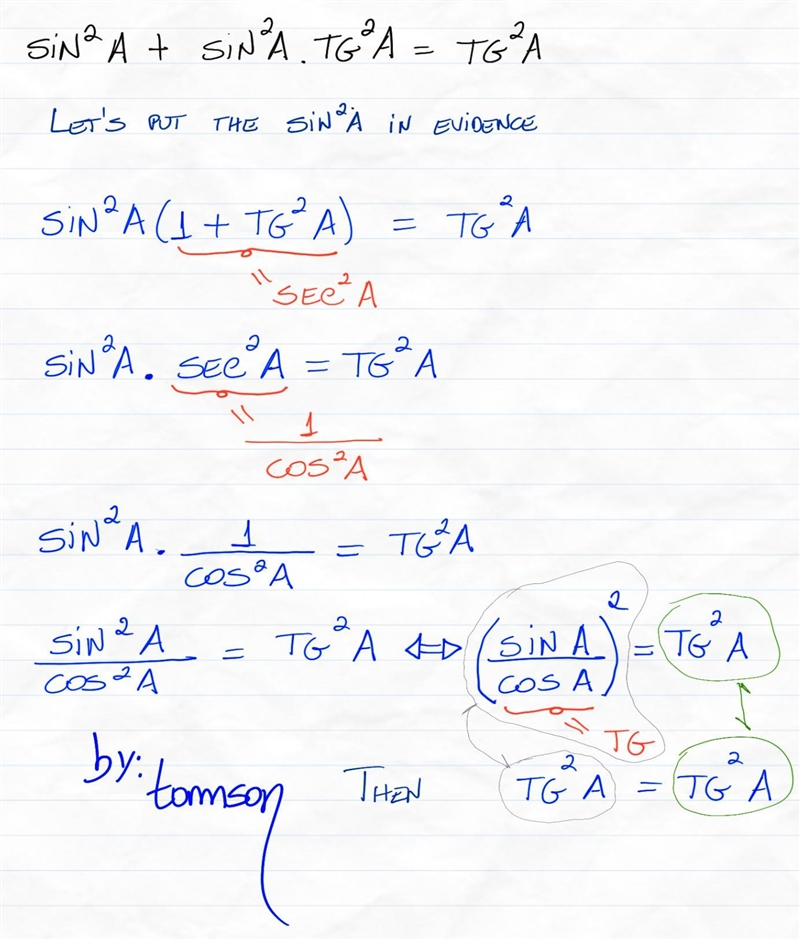 SiN²A + SiN²A . TG²A = TG²A
LET'S PUT THE SiN²A iN EViDENCE
SiN²A (1 + TG²A) = TG²A
= SEC²A
SiN²A . SEC²A = TG²A
= 1/COS²A
SiN²A . 1/COS²A = TG²A
SiN²A/COS²A = TG²A ⇔ (SiN A/COS A)² = TG²A
= TG
by: tomnson THEN TG²A = TG²A